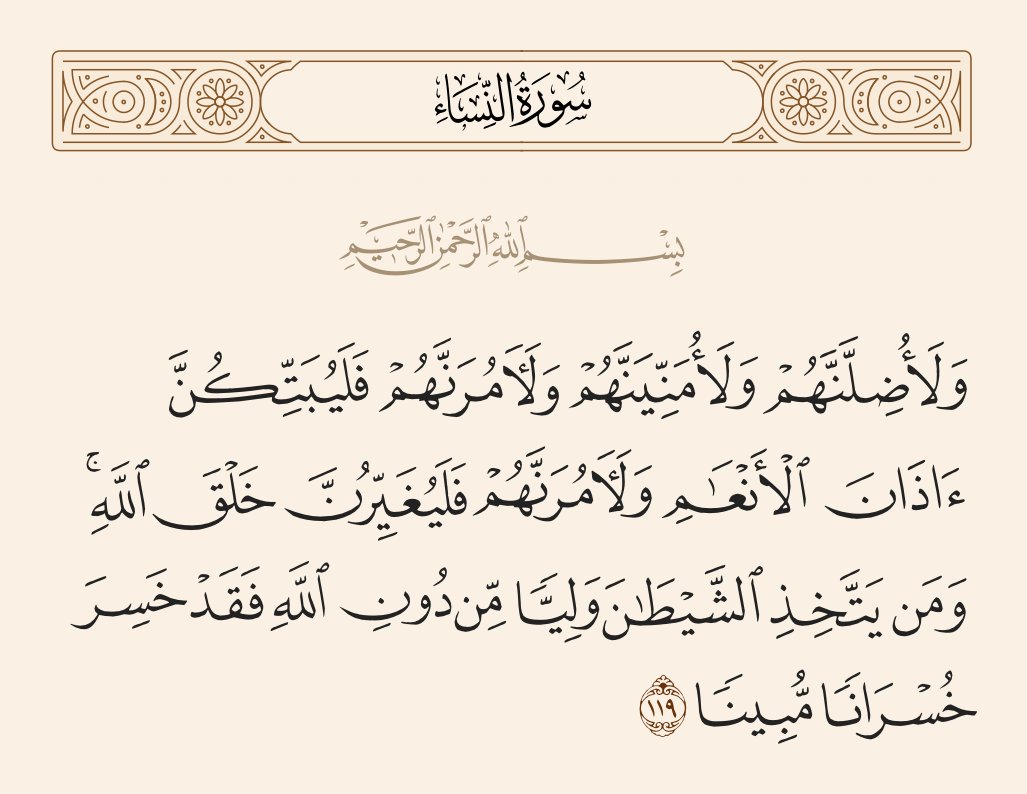 سُورَةُ النِّسَاءِ
بِسْمِ ٱللَّهِ ٱلرَّحْمَٰنِ ٱلرَّحِيمِ
وَلَأُضِلَّنَّهُمْ وَلَأُمَنِّيَنَّهُمْ وَلَـَٔامُرَنَّهُمْ فَلَيُبَتِّكُنَّ
ءَاذَانَ ٱلْأَنْعَـٰمِ وَلَـَٔامُرَنَّهُمْ فَلَيُغَيِّرُنَّ خَلْقَ ٱللَّهِ ۚ
وَمَن يَتَّخِذِ ٱلشَّيْطَـٰنَ وَلِيًّا مِّن دُونِ ٱللَّهِ فَقَدْ خَسِرَ
خُسْرَانًا مُّبِينًا ١١٩